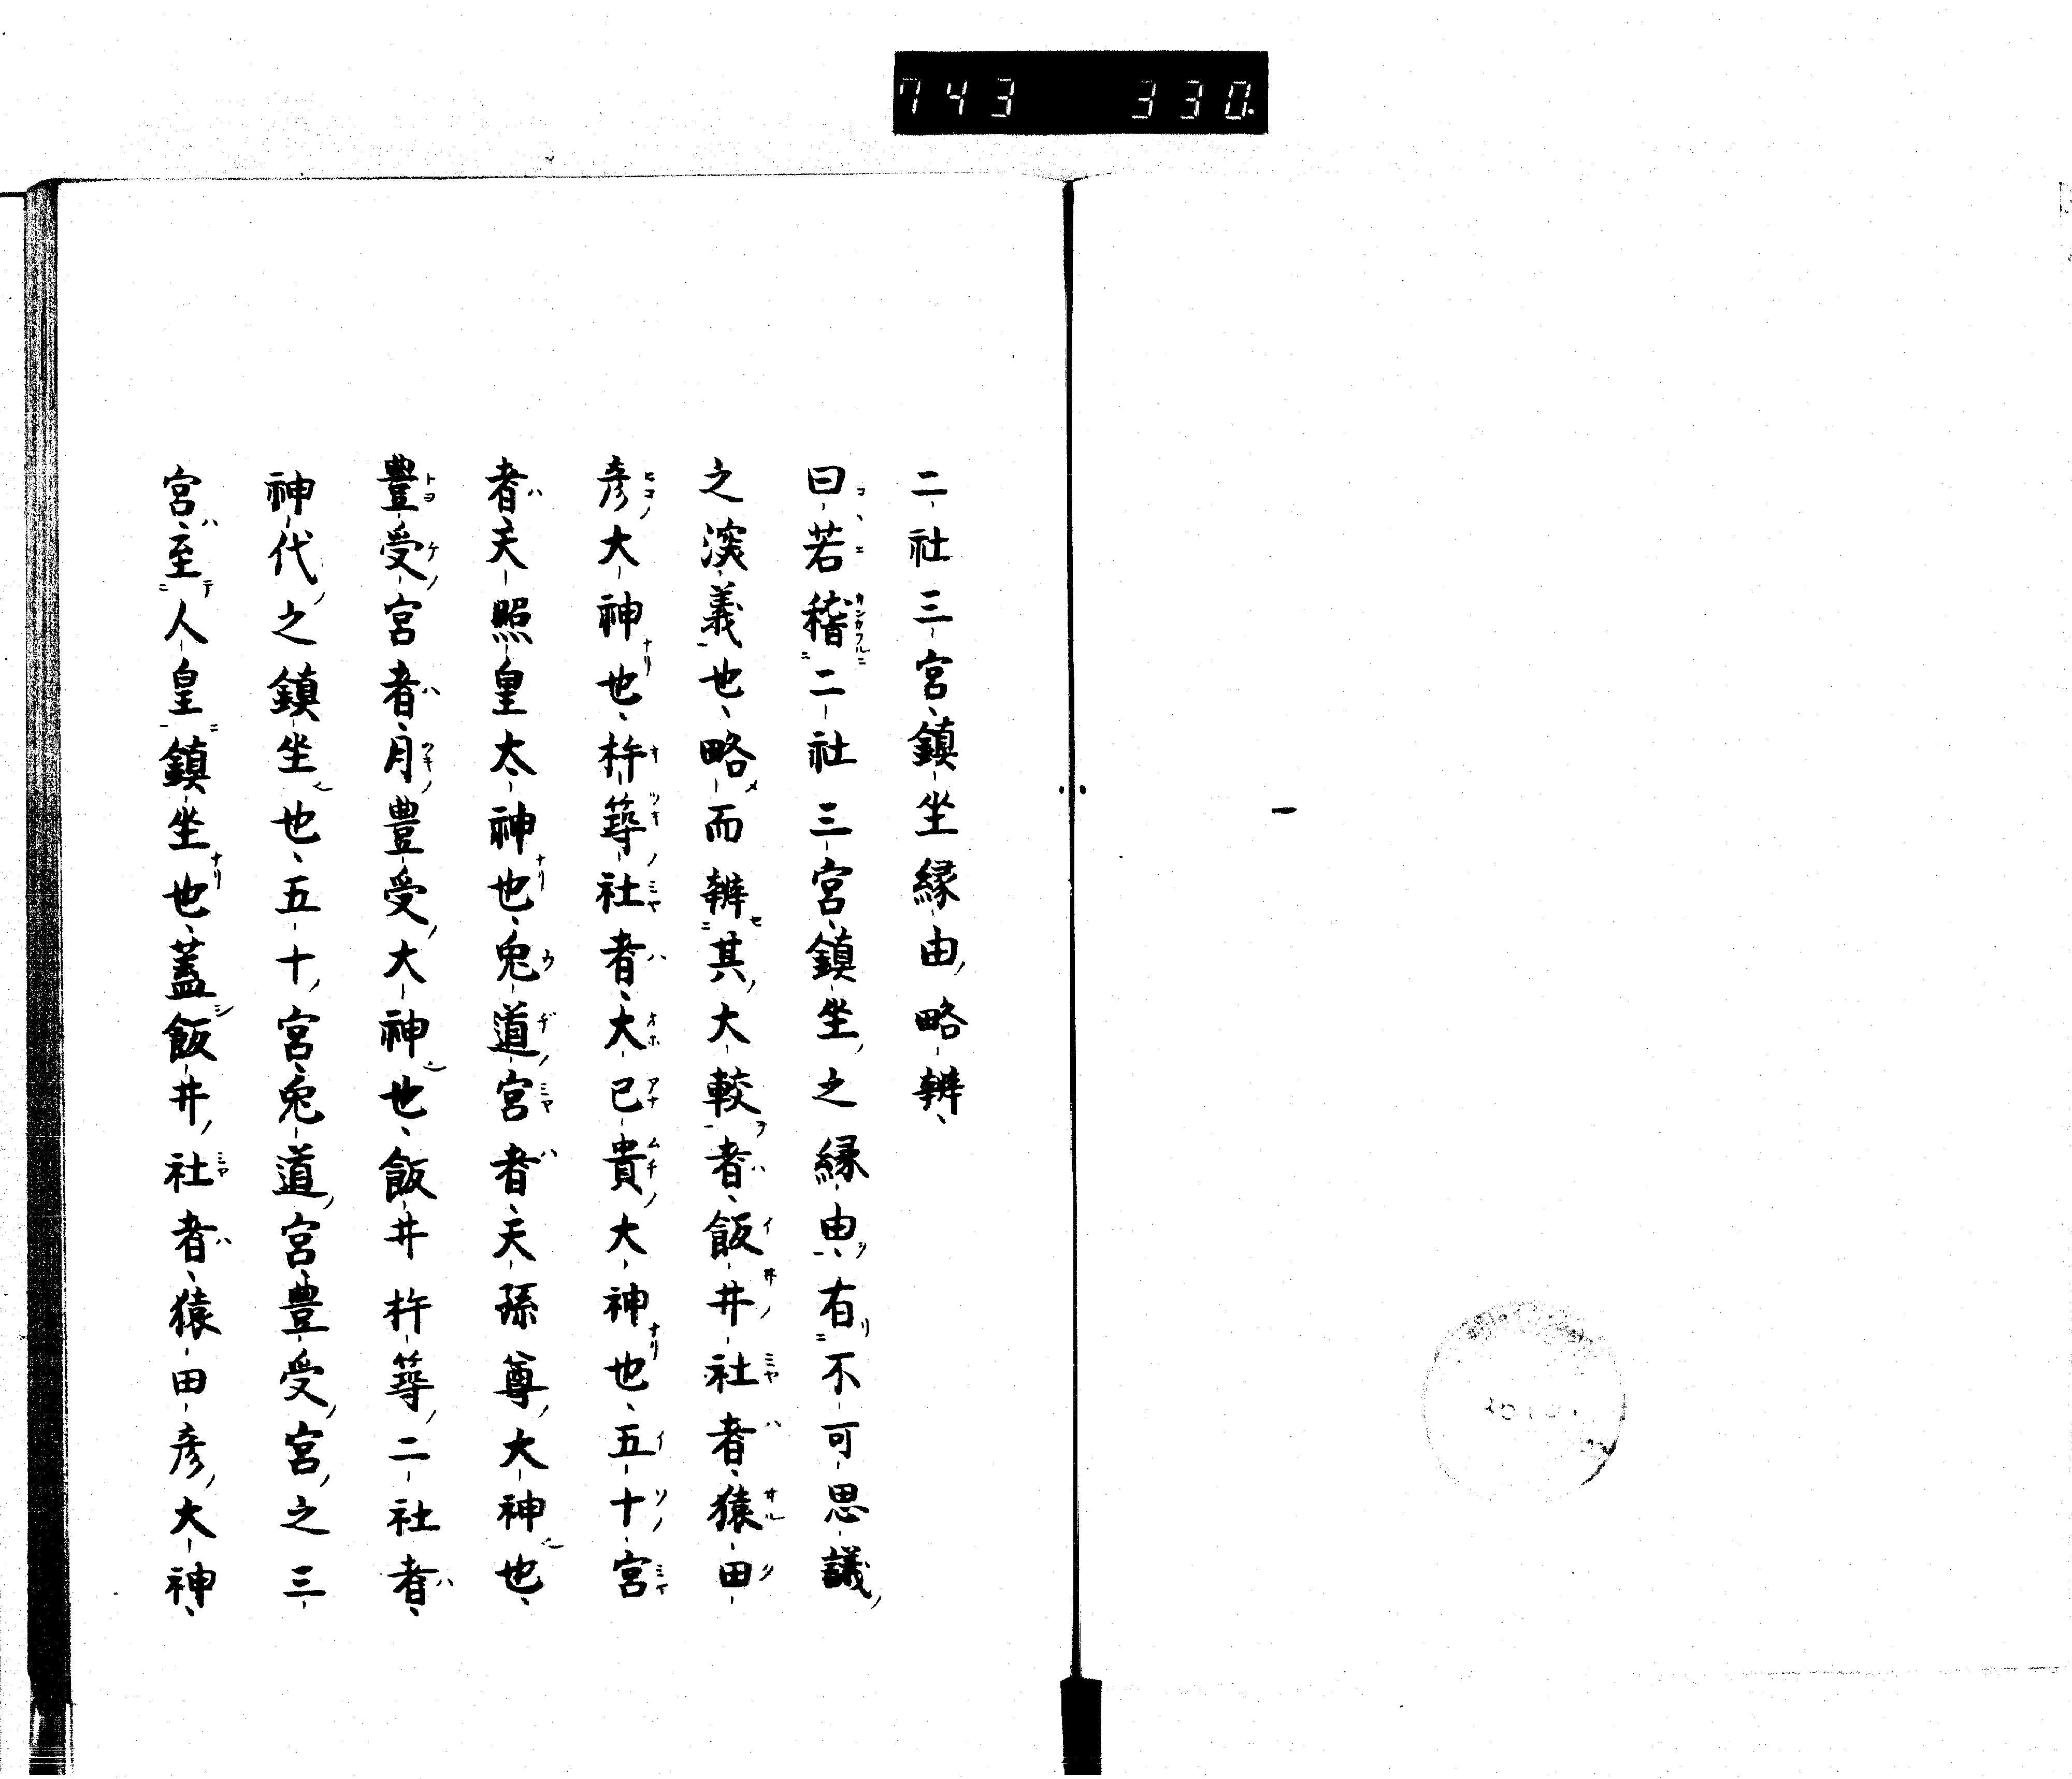 743 330
二社三宮鎮坐縁由略辨、
曰若稽二社三宮鎮坐之縁由、有不可思議
之深義也、略而辨其大較者、飯井社者、猿田
彦大神也、杵築社者、大已貴大神也、五十宮
者、天照皇太神也、兎道宮者、天孫尊大神也、
豊受宮者、月豊受大神也、飯井杵築二社者、
神代之鎮坐也、五十宮兎道宮豊受宮之三
宮、至人皇鎮坐也、蓋飯井社者、猿田彦大神、